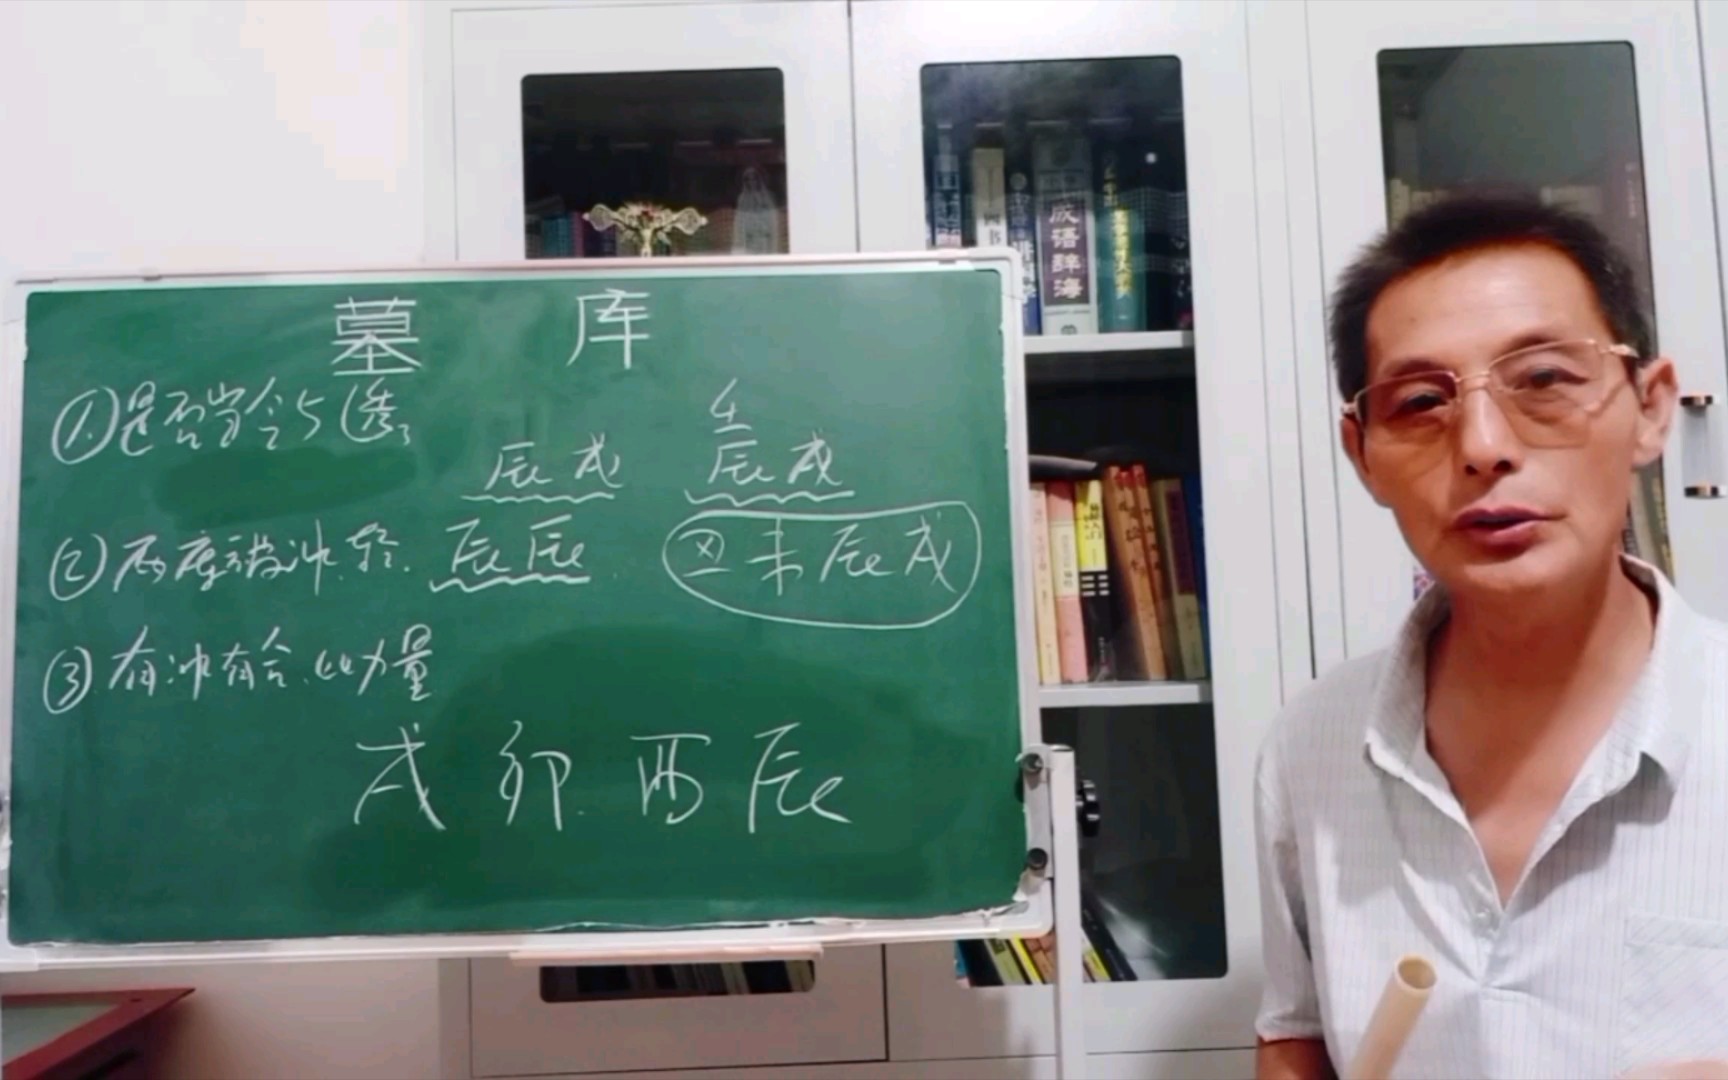 墓 库
①是否当令与透
生
辰戌 辰戌
②两库被冲.轻. 辰辰 丑未辰戌
③有冲有合.比力量
戌 卯 酉 辰
成语辞海
四书